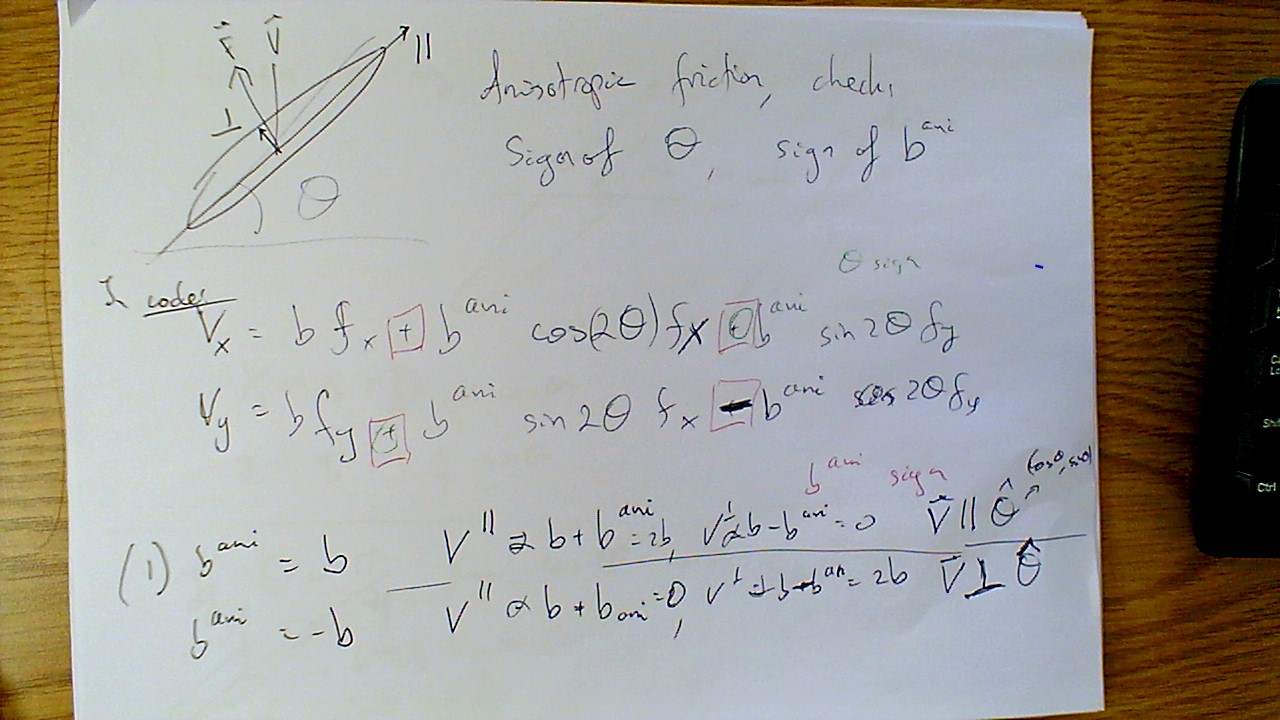 F V
||
⊥
θ
Anisotropic friction, check,
Sign of θ, sign of b^ani
In codes
θ sign
V_x = b f_x + b^ani cos(2θ) f_x + b^ani sin 2θ f_y
V_y = b f_y + b^ani sin 2θ f_x - b^ani cos 2θ f_y
b^ani sign
(cosθ, sinθ)
(1) b^ani = b V^|| ∝ b + b^ani = 2b, V^⊥ ∝ b - b^ani = 0 V || θ̂
b^ani = -b V^|| ∝ b + b_ani = 0, V^⊥ = b - b^an = 2b V ⊥ θ̂
Ctrl